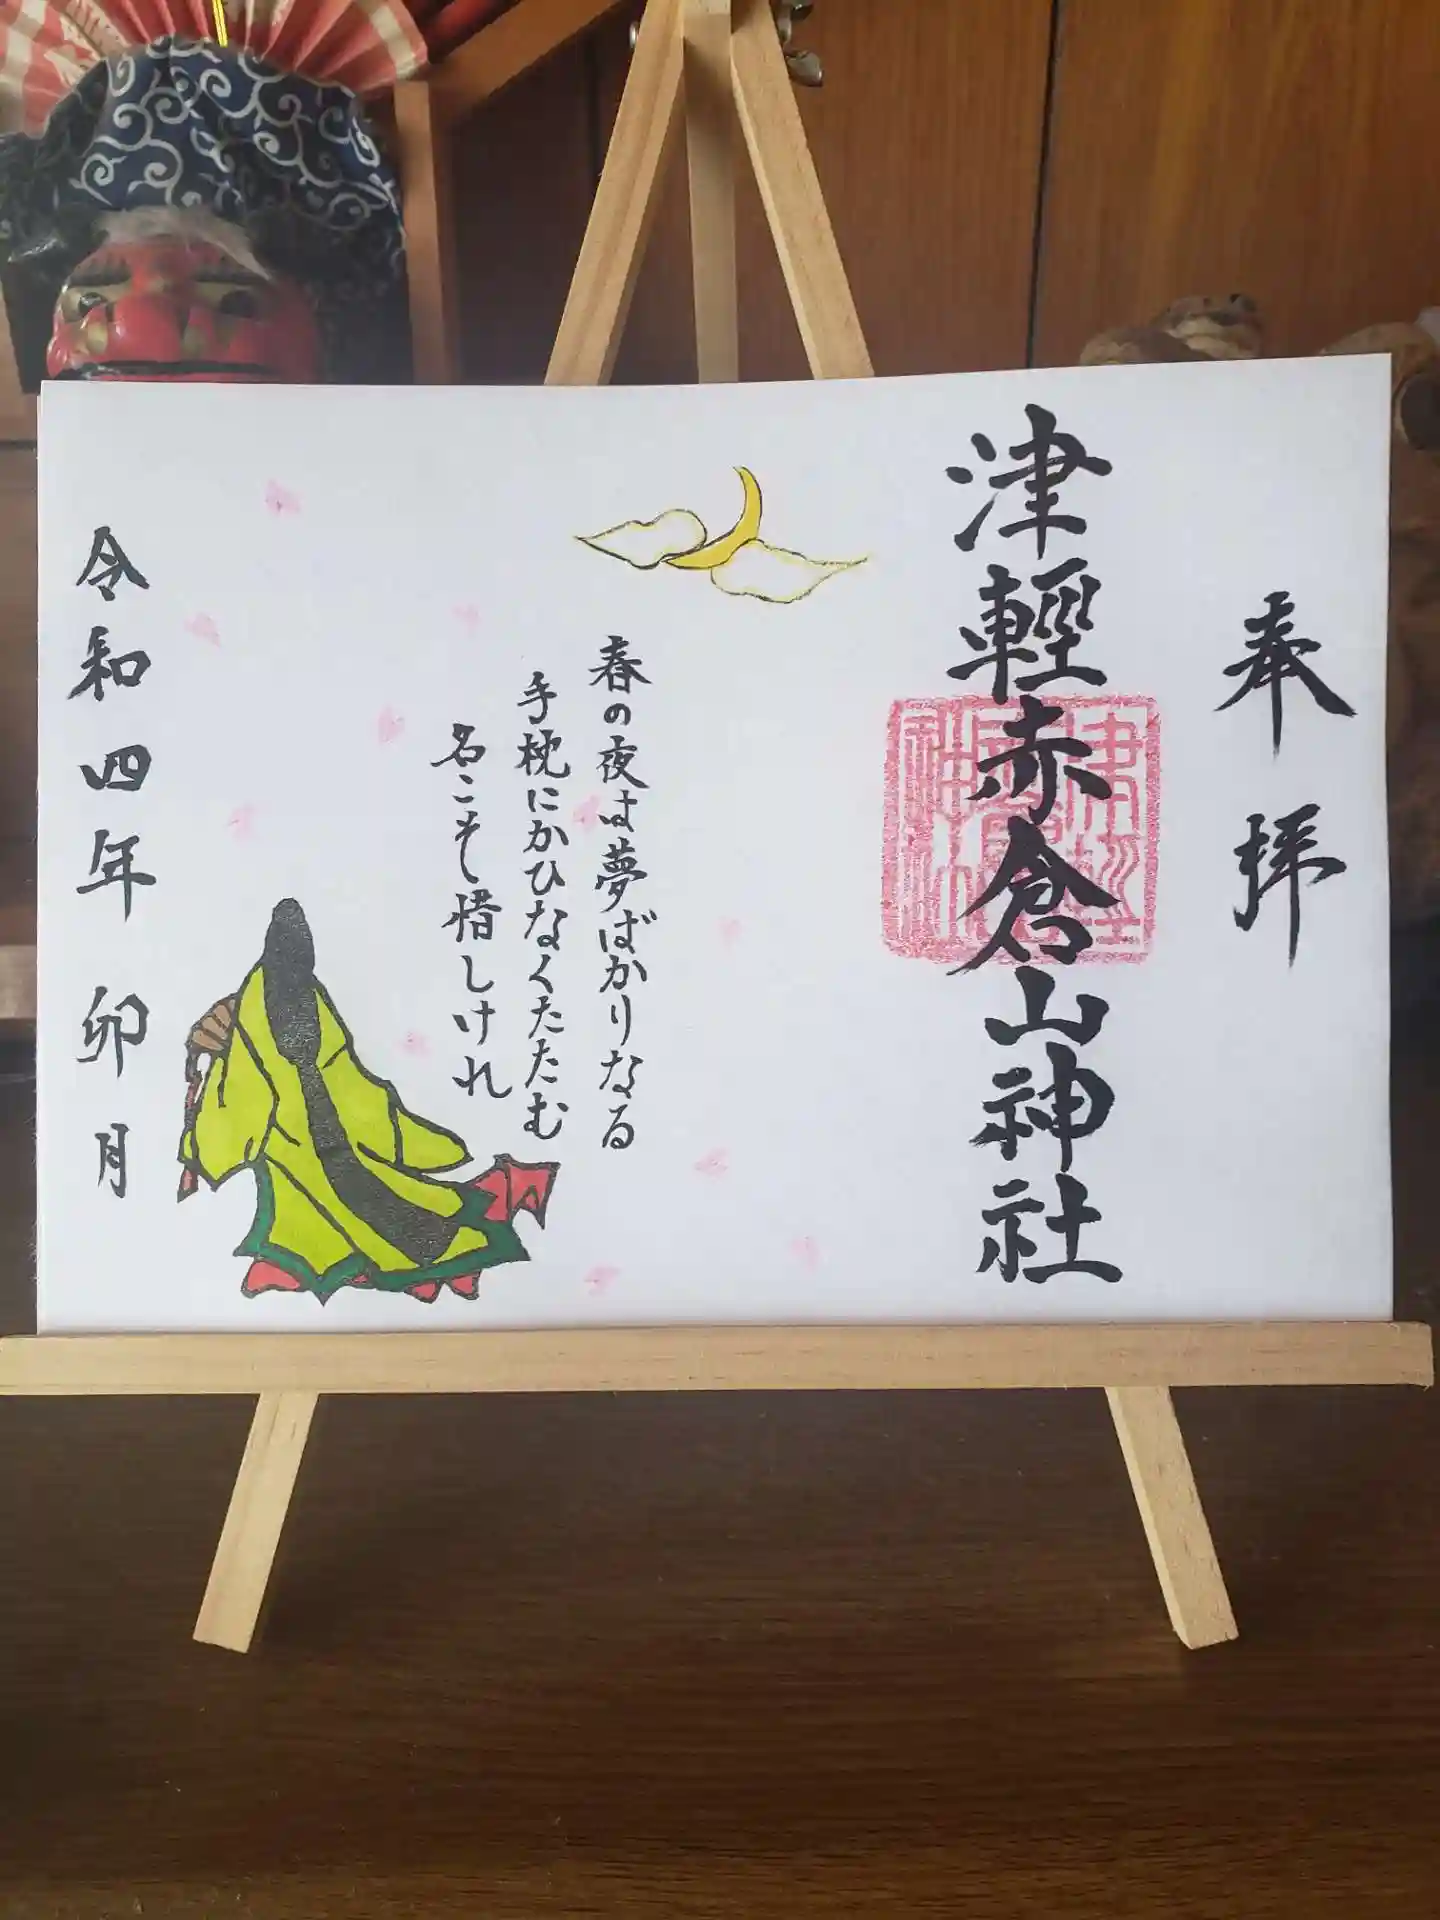 奉拝
津輕赤倉山神社
春の夜は夢ばかりなる
手枕にかひなくたたむ
名こそ惜しけれ
令和四年 卯月